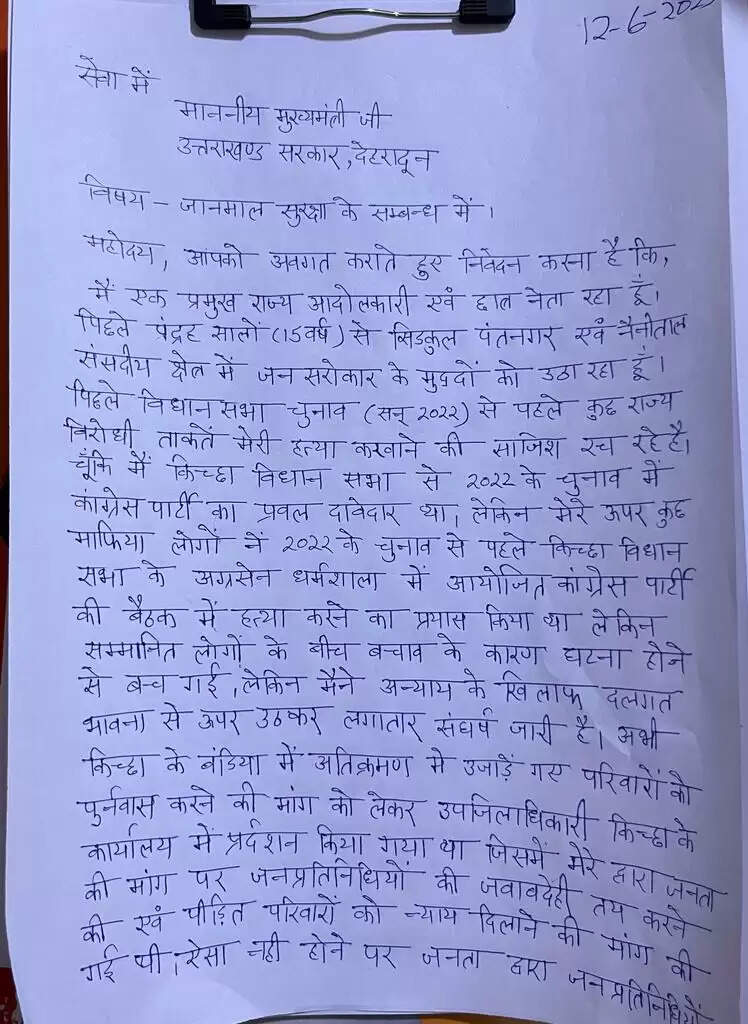 12-6-202
सेवा में
माननीय मुख्यमंत्री जी
उत्तराखण्ड सरकार, देहरादून
विषय - जानमाल सुरक्षा के सम्बन्ध में।
महोदय, आपको अवगत कराते हुए निवेदन करना है कि,
मैं एक प्रमुख राज्य आदोलकारी एवं छात्र नेता रहा हूँ।
पिछले पंद्रह सालों (15 वर्ष) से सिडकुल पंतनगर एवं नैनीताल
संसदीय क्षेत्र में जन सरोकार के मुद्दों को उठा रहा हूँ।
पिछले विधान सभा चुनाव (सन् 2022) से पहले कुछ राज्य
विरोधी ताकतें मेरी हत्या करवाने की साजिश रच रहे है।
चूँकि मैं किच्छा विधान सभा से 2022 के चुनाव में
कांग्रेस पार्टी का प्रवल दावेदार था, लेकिन मेरे ऊपर कुछ
माफिया लोगों ने 2022 के चुनाव से पहले किच्छा विधान
सभा के अग्रसेन धर्मशाला में आयोजित कांग्रेस पार्टी
की बैठक में हत्या करने का प्रयास किया था लेकिन
सम्मानित लोगों के बीच बचाव के कारण घटना होने
से बच गई, लेकिन मैने अन्याय के खिलाफ दलगत
भावना से ऊपर उठकर लगातार संघर्ष जारी है। अभी
किच्छा के बंडिया में अतिक्रमण मे उजाड़ें गए परिवारों को
पुर्नवास करने की मांग को लेकर उपजिलाधिकारी किच्छा के
कार्यालय में प्रर्दशन किया गया था जिसमें मेरे द्वारा जनता
की मांग पर जनप्रतिनिधियों की जवावदेही तय करने
की एवं पीड़ित परिवारों को न्याय दिलाने की मांग की
गई थी, ऐसा नही होने पर जनता द्वारा जनप्रतिनिधियों